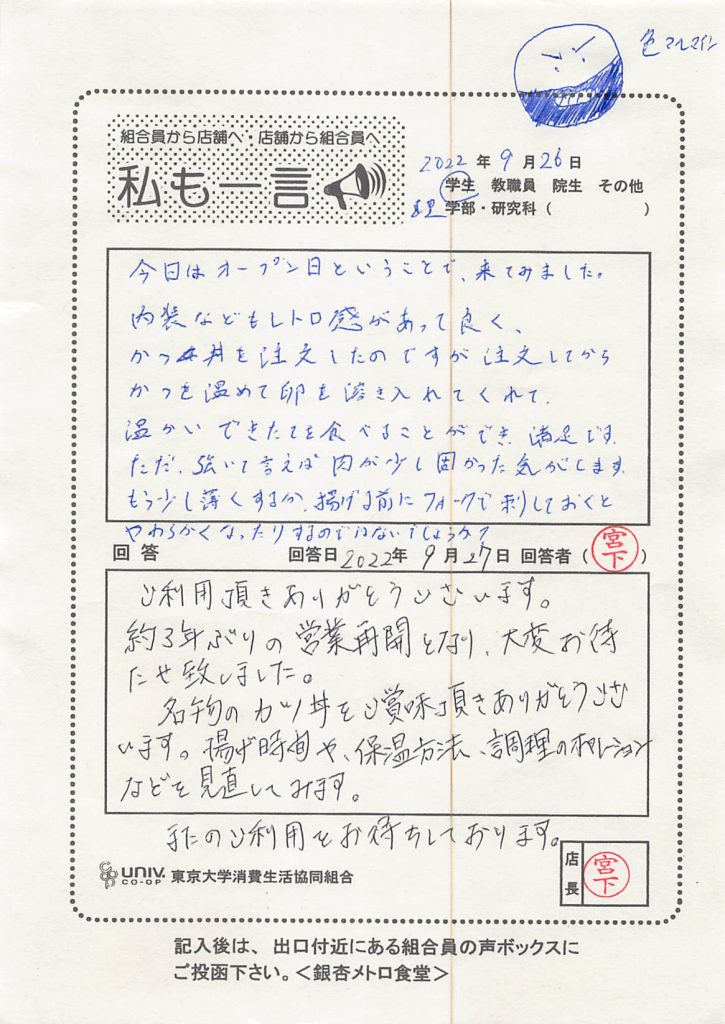 色マルマイン
組合員から店舗へ・店舗から組合員へ
私も一言
2022年9月26日
学生 教職員 院生 その他
理学部・研究科( )
今日はオープン日ということで、来てみました。
内装などもレトロ感があって良く、
かつ丼を注文したのですが注文してから
かつを温めて卵を溶き入れてくれて、
温かいできたてを食べることができ、満足です。
ただ、強いて言えば肉が少し固かった気がします。
もう少し薄くするか、揚げる前にフォークで刺しておくと
やわらかくなったりするのではないでしょうか?
回答 回答日2022年9月27日 回答者(宮下)
ご利用頂きありがとうございます。
約3年ぶりの営業再開となり、大変お待
たせ致しました。
名物のカツ丼をご賞味頂きありがとうござ
います。揚げ時間や、保温方法、調理のオペレーション
などを見直してみます。
またのご利用をお待ちしております。
店長 宮下
UNIV. CO-OP 東京大学消費生活協同組合
記入後は、出口付近にある組合員の声ボックスに
ご投函下さい。<銀杏メトロ食堂>